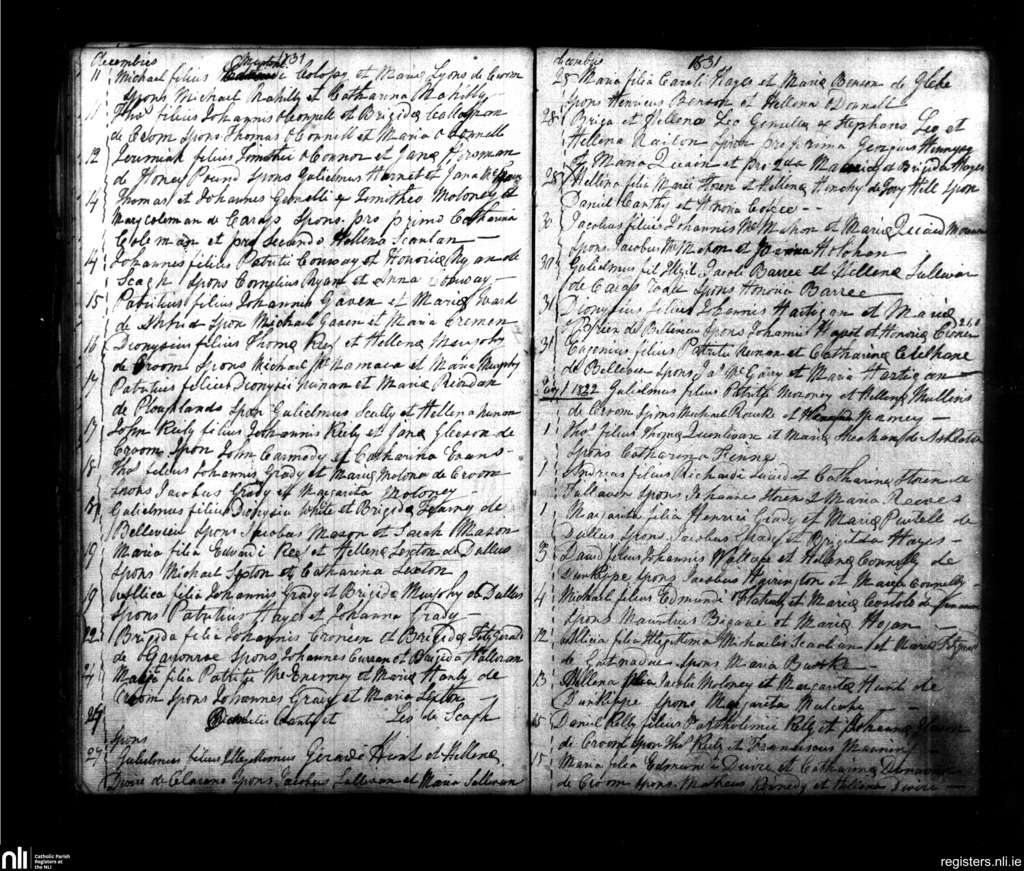 Decembris 1831
11 Michael filius Colopy et Maria Lyons de Croom
Spons Michael Mahilly et Catharina Mahilly
11 Thos filius Johannis O Connell et Brigida Callaghan
de Croom Spons Thomas O Connell et Maria O Connell
12 Jeremiah filius Timothei O Connor et Jana Horsman
de Honey Pound Spons Gulielmus Harnet et Jana
14 Thomas et Johannes Gemelli ex Timotheo Moloney et
Mary Coleman de Carass Spons pro primo Catharina
Coleman et pro secundo Hellena Scanlan
14 Johannes filius Patritii Conway et Honoria Ryan de
Scagh Spons Cornelius Ryan et Anna Conway
15 Patritius filius Johannis Gaven et Maria Ward
de Spon Michael Gaven et Maria Cremen
16 Dionysius filius Thoma et Hellena Murphy
de Croom Spons Michael Mc Namara et Maria Murphy
17 Patritius filius Dionysii Guinan et Maria Riordan
de Ploughlands Spon Gulielmus Scully et Hellena
17 John Kiely filius Johannis Kiely et Jana Gleeson de
Croom Spon John Carmody et Catharina Evans
18 Thos filius Johannis Grady et Maria Molona de Croom
Spons Jacobus Grady et Margarita Moloney
Gulielmus filius Dionysii White et Brigida Kearny de
Bellevieu Spons Jacobus Mason et Sarah Mason
19 Maria filia Edwardi Kee et Hellena Sexton de Dullas
Spons Michael Sexton et Catharina Sexton
19 Allica filia Johannis Grady et Brigida Murphy de Dullas
Spons Patritius Hayes et Johanna Grady
22 Brigida filia Johannis Croneen et Brigida FitzGerald
de Spons Johannes Curran et Brigida Halloran
24 Maria filia Patritii Mc Enerney et Maria Hanly de
Croom Spons Johannes Grady et Maria Sexton
24 Leo de Scagh
Spons
27 Gulielmus filius Illegittimus Gerardi Hunt et Hellena
de Clarana Spons Jacobus Sullivan et Maria Sullivan
Decembris 1831
28 Maria filia Caroli Hayes et Maria Benson de Glebe
Spons Henricus Benson et Hellena O Donnell
28 Briga et Hellena Leo Gemella ex Stephano Leo et
Hellena Railton Spon pro prima Georgius Hennessy
et Maria Quain et pro 2da et Brigida Hayes
28 Hellena filia et Hellena Hinchy de Tory Hill Spon
Daniel Canthy et Honora
30 Jacobus filius Johannis Mc Mahon et Maria
Spons Jacobus Mc Mahon et Honora Holohan
30 Gulielmus fil Illgit Jacobi Barree et Hellena Sullivan
de Carass road Spons Honora Barree
31 Dionysius filius Johannis Hartigan et Maria
O Brien de Bellevieu Spons Johannis et Honoria Cronen
31 Eugenius filius Patritii Renan et Catharina Clelehane
de Bellevieu Spons Jas Mc Gariy et Maria Hartigan
Jany 1 1832 Gulielmus filius Patritii Moroney et Hellena Mullins
de Croom Spons Michael Rourke et Kearney
1 Thos filius Thoma Quinlivan et Maria Sheehan de
Spons Catharina Hennes
1 Andreas filius Richardi et Catharina Horen de
Tullavin Spons Johannes Horen & Maria Reeves
1 Margarita filia Henrici Grady et Maria Purtell de
Dullas Spons Jacobus Grady et Brigitta Hayes
3 David filius Johannis Wallace et Hellena Connelly de
Dunkippe Spons Jacobus Harrington et Maria Connelly
4 Michael filius Edmundi Flaherty et Maria Costolo de
Spons Mauritius Bigane et Maria Hogan
12 Allicia filia Illegittima Michaelis Scanlan et Maria
de Gurtnadue Spons Maria Burke
13 Hellena filia Jacobi Moloney et Margarita Hunt de
Dunkippe Spons Margarita Mulcahy
15 Daniel Kelly filius Bartholomei Kely et Johanna Gleeson
de Croom Spon Thos Kiely et Franciscus Manning
15 Maria filia Edmundi Dwire et Catharina Donovan
de Croom Spons Matheus Kennedy et Hellena Dwire
nli Catholic Parish
Registers at
the NLI
registers.nli.ie